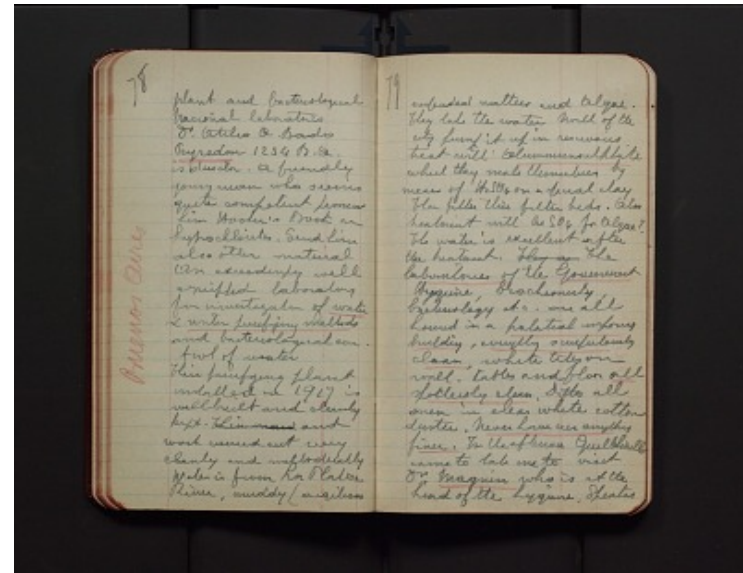 78
plant and bacteriological
nacional laboratories
Dr. Atilio A Bado
1234 B.A.
is director. A friendly
young man who seems
quite competent
him Hooker's Book on
hypochlorites. Send him
also other material
an exceedingly well
equipped laboratory
for investigation of water
& water purifying methods
and bacteriological
of water
This purifying plant
installed in 1917 is
well built and cleanly
kept. and
work carried out very
cleanly and
Water is from La Plata
River, muddy (
Buenos Aires
79
suspended matter and algae.
They take the water North of the
city pump it up in
treat with
which they make themselves by
means of H2SO4 on a clay
then filter thru filter beds. Also
treatment with CuSO4 for algae?
The water is excellent after
the treatment. The
laboratories of the Government
Hygiene, Biochemistry,
Bacteriology etc. are all
housed in a palatial
building, scrupulously
clean, white tiles on
wall. Tables and floor all
spotlessly clean. all
in clean white cotton
duster. Never have seen anything
finer. In the afternoon
came to take me to visit
Dr. who is at the
head of the hygiene,